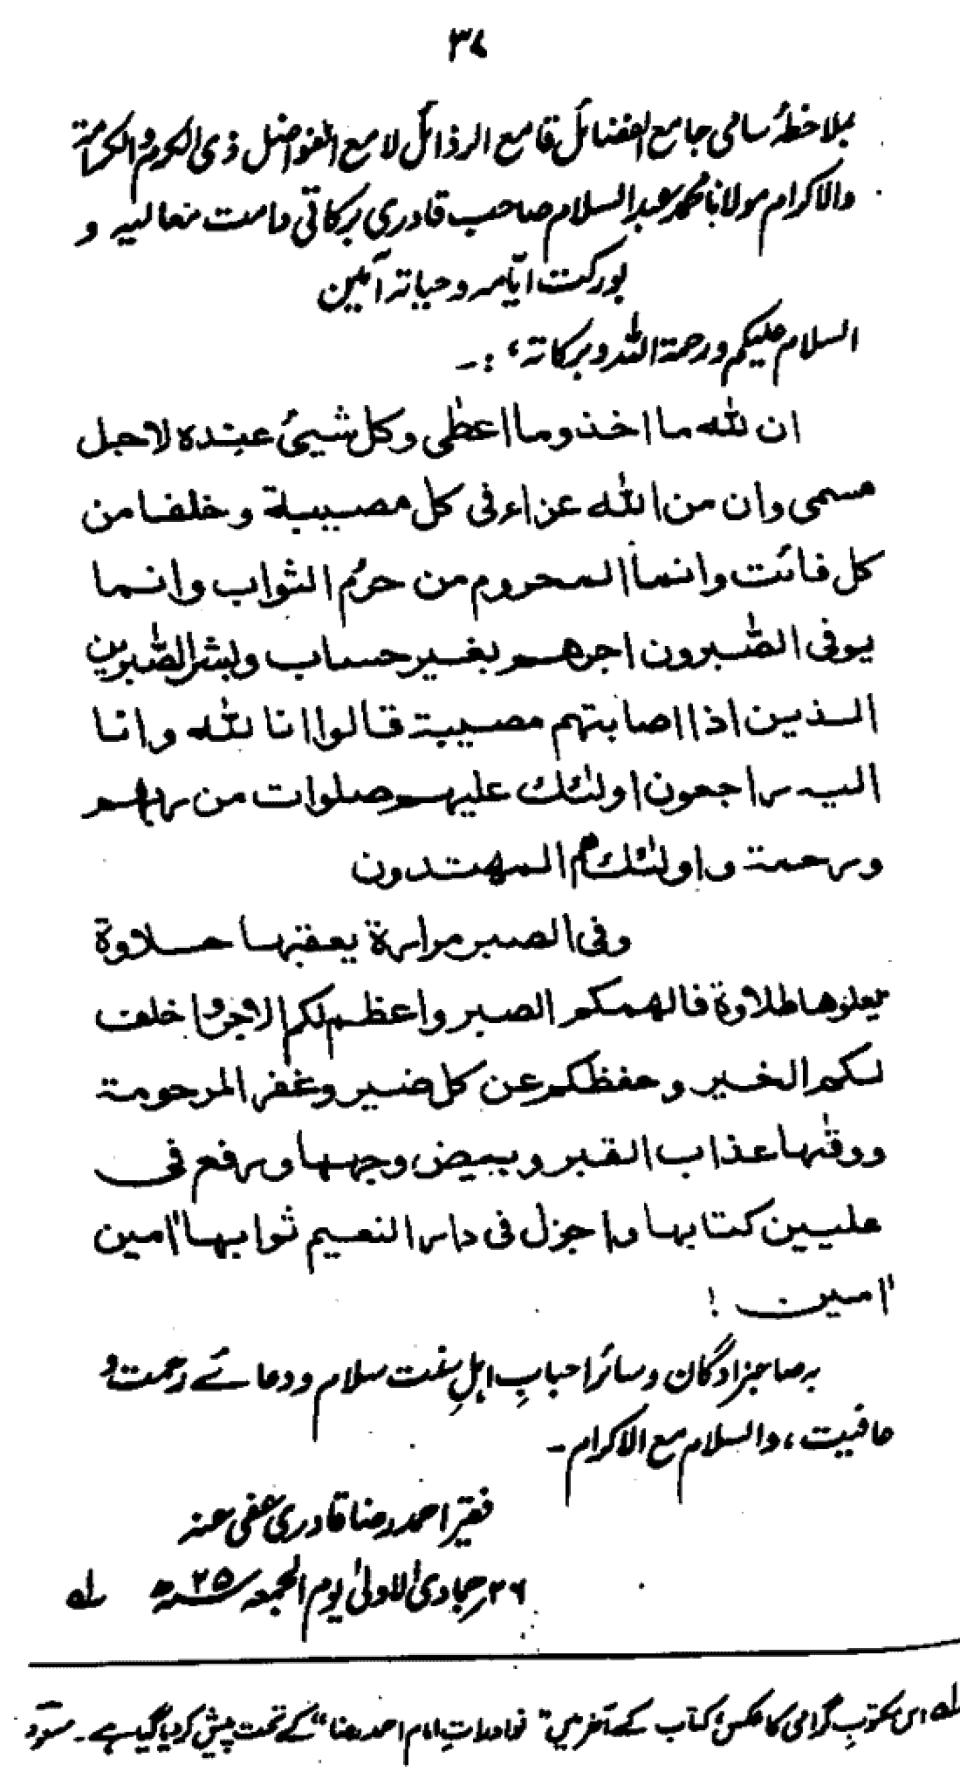 ۳۸
بملاخطۂ سامی جامع الفضائل قامع الرذائل لامع الفواضل ذی الکرم والکرامۃ
والاکرام مولانا محمد عبد السلام صاحب قادری برکاتی دامت معالیہ و
بورکت ایّامہ و حیاتہ آمین
السلام علیکم و رحمۃ اللہ و برکاتہ ، :۔
ان للّٰه ما اخذ وما اعطٰی وکل شیئ عندہ لاجل
مسمی وان من اللّٰه عزاء فی کل مصیبۃ وخلفا من
کل فائت وانما المحروم من حرُم الثواب وانما
یوفی الصّٰبرون اجرھم بغیر حساب وبشر الصّٰبرین
الذین اذا اصابتهم مصیبۃ قالوا انا للّٰه وانا
الیه راجعون اولئٰك علیهم صلوات من ربهم
ورحمۃ واولئٰك هم المهتدون
وفی الصبر مرارۃ یعقبها حلاوۃ
یعلوها طلاوۃ فالهمکم الصبر واعظم لکم الاجر واخلف
لکم الخیر وحفظکم عن کل ضیر وغفر المرحومۃ
ووقٰها عذاب القبر وبیض وجهها ورفع فی
علیین کتابها واجزل فی دار النعیم ثوابها اٰمین
اٰمین !
بہ صاحبزادگان و سائر احبابِ اہلِ سنت سلام و دعائے رحمت و
عافیت ، والسلام مع الاکرام ۔
فقیر احمد رضا قادری عفی عنہ
۲۶ جمادی الاولیٰ یوم الجمعہ ۲۵ھ لہ
لہ اس مکتوبِ گرامی کا عکس، کتاب کے آخر میں "نوادراتِ امام احمد رضا" کے تحت پیش کر دیا گیا ہے ۔ مسعود